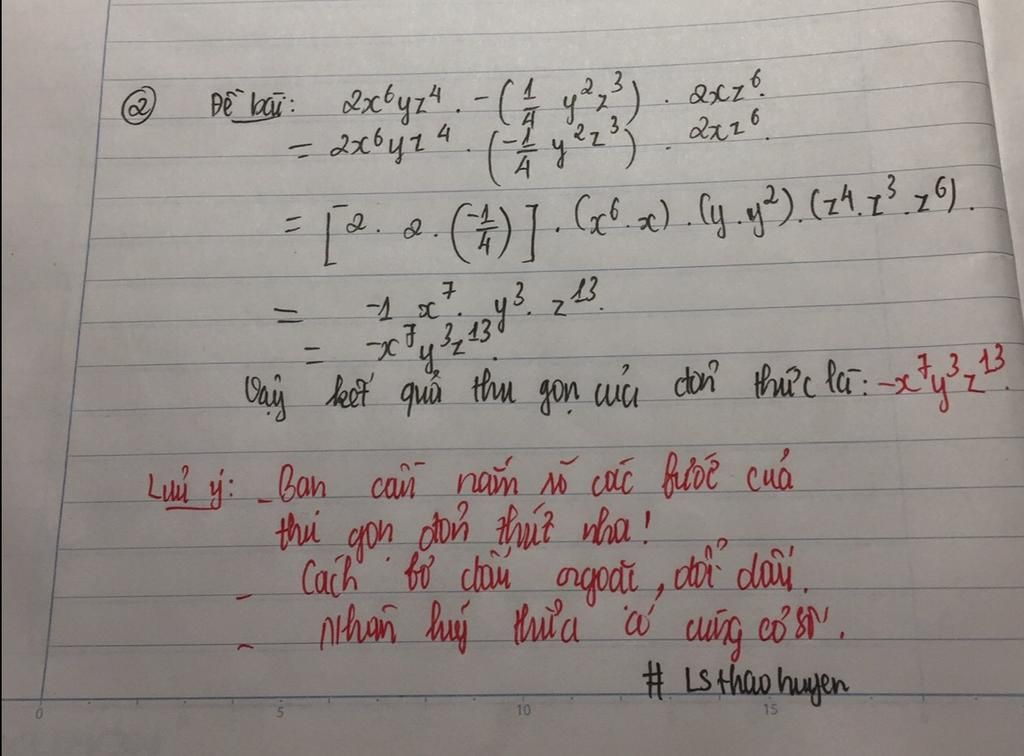 ② Đề bài: 2x⁶yz⁴ . -(1/4 y²z³) . 2xz⁶.
= 2x⁶yz⁴ . (-1/4 y²z³) . 2xz⁶.
= [-2 . 2 . (-1/4)] . (x⁶.x) . (y.y²) . (z⁴.z³.z⁶).
= -1 x⁷. y³. z¹³.
= -x⁷y³z¹³.
Vậy kết quả thu gọn của đơn thức là: -x⁷y³z¹³.
Lưu ý: - Bạn cần nắm rõ các bước của
thu gọn đơn thức nha!
- Cách bỏ dấu ngoặc, đổi dấu.
- Nhân luỹ thừa có cùng cơ số.
# LSthaohuyen
0 5 10 15